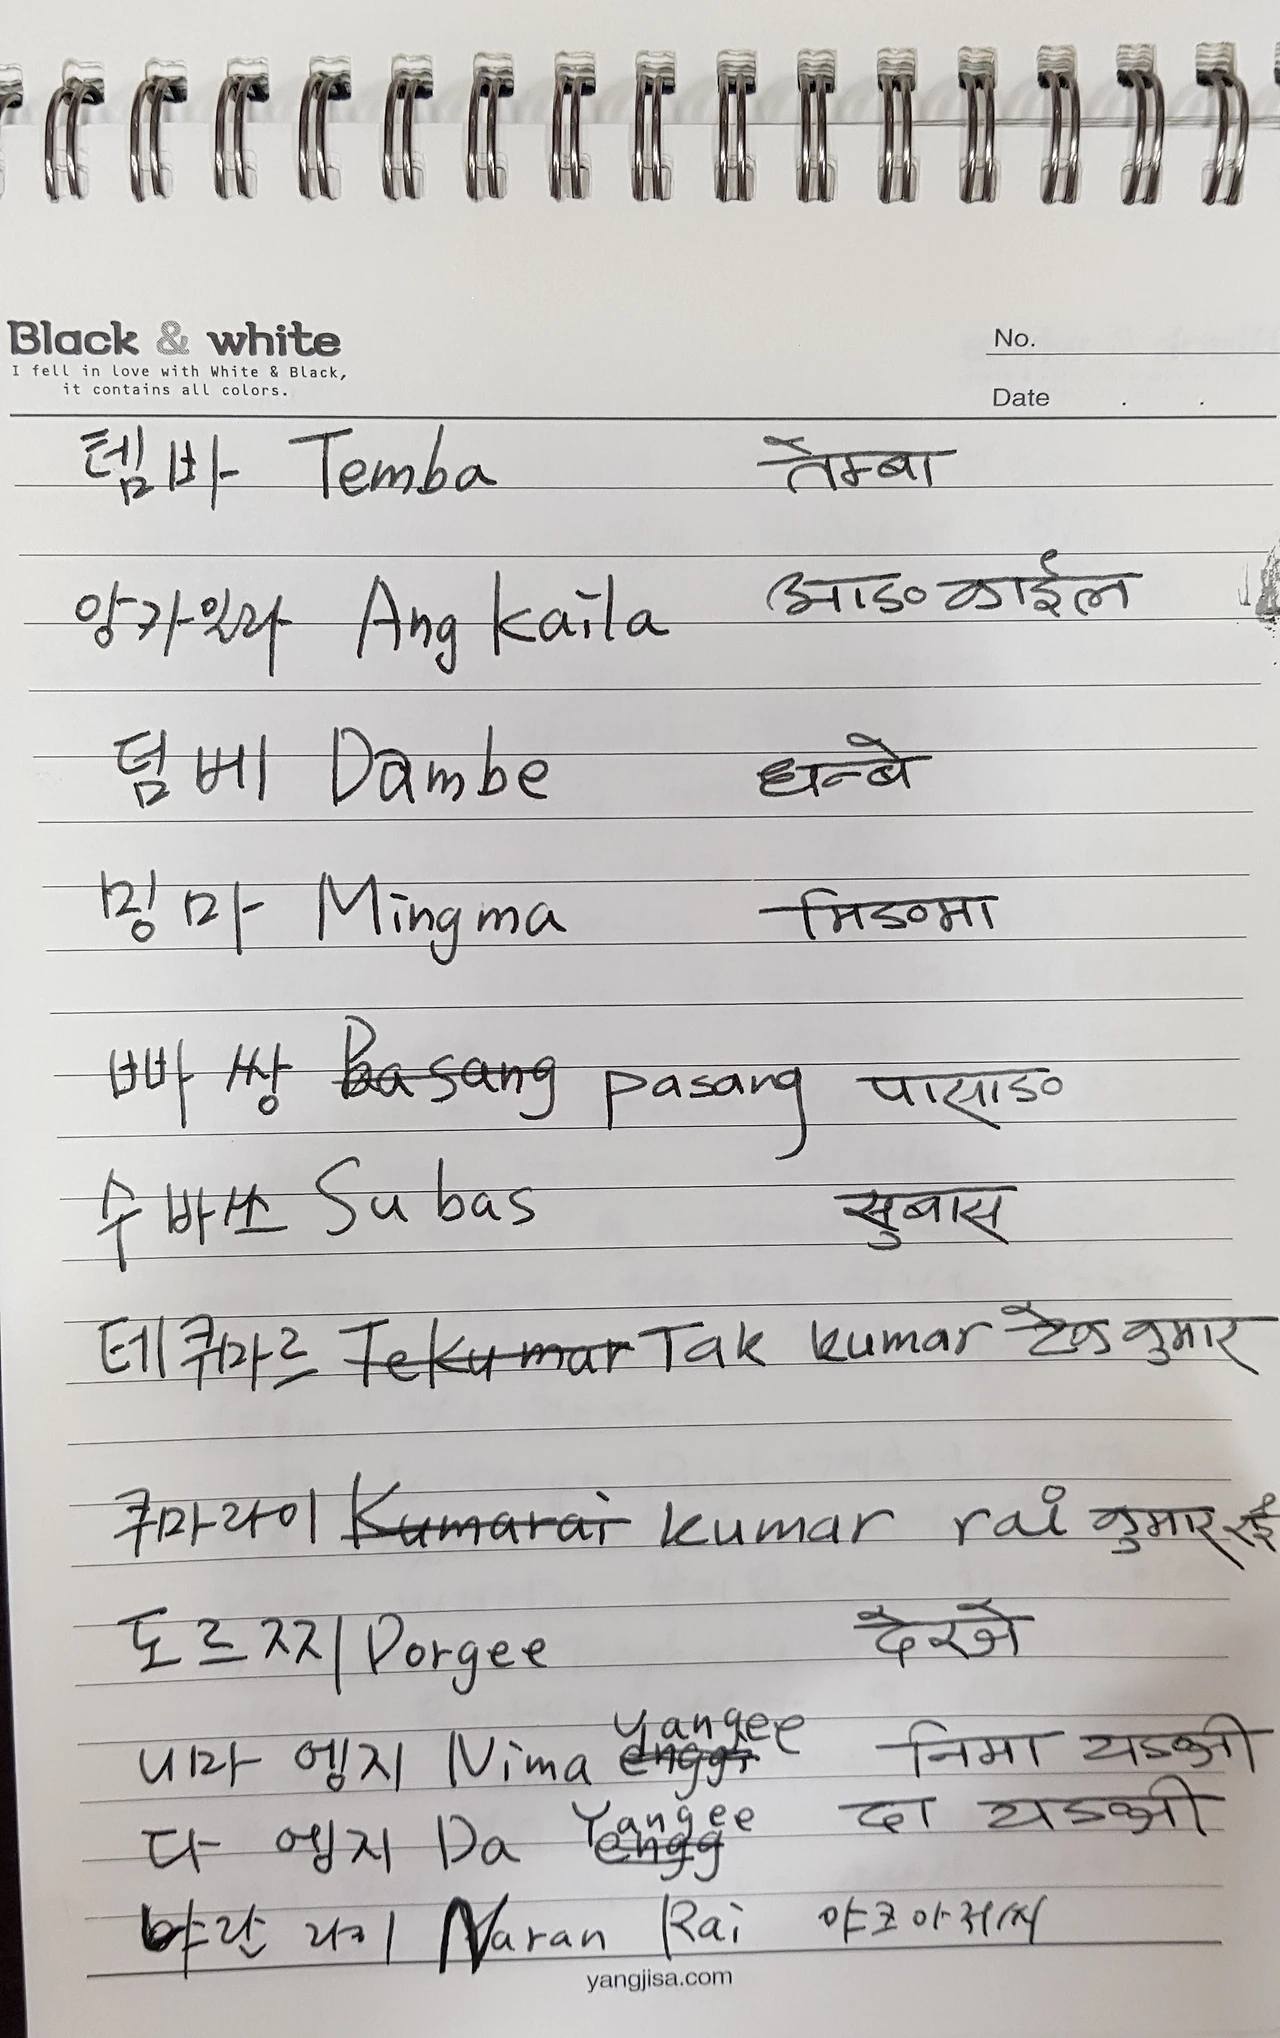 Black & white
I fell in love with White & Black,
it contains all colors.
No.
Date . .
템바 Temba तेम्बा
앙가일라 Ang kaila आङ काईल
덤베 Dambe धन्बे
밍마 Mingma मिङमा
빠쌍 Basang pasang पासाङ
수바쓰 Subas सुबास
테쿠마르 Tekumar Tak kumar टेक कुमार
쿠마라이 Kumarai kumar rai कुमार रई
도르찌 Dorgee देरजे
니마 엥지 Nima Yangee निमा यङजी
다 엥지 Da Yangee दा यङजी
라이 Naran Rai
yangjisa.com